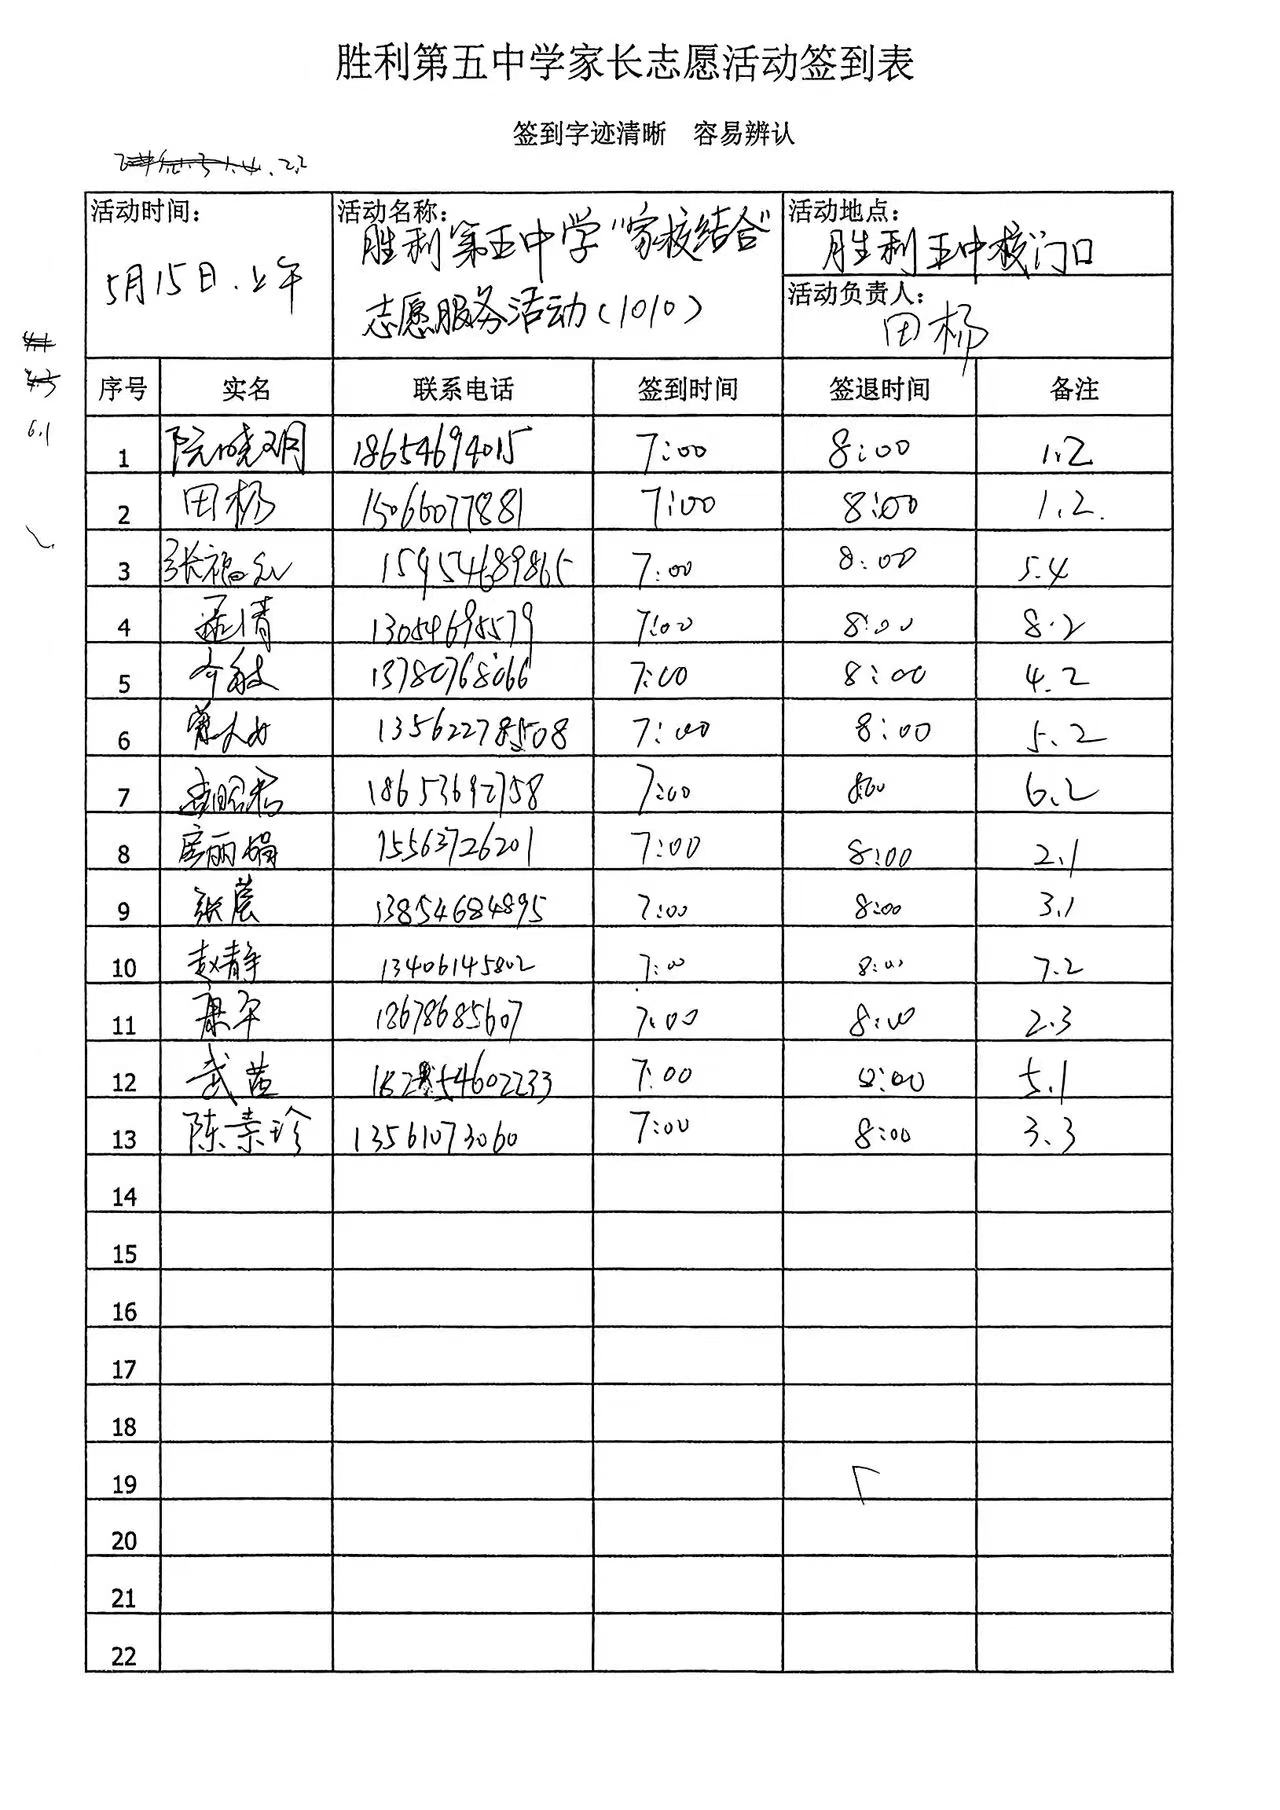 胜利第五中学家长志愿活动签到表
签到字迹清晰 容易辨认
2.2
活动时间: 5月15日.上午
活动名称: 胜利第五中学"家校结合"
志愿服务活动(1010)
活动地点: 胜利五中校门口
活动负责人: 田杨
6.1
序号 实名 联系电话 签到时间 签退时间 备注
1 阮晓明 18654694015 7:00 8:00 1.2
2 田杨 15066077881 7:00 8:00 1.2.
3 张福 15954689865 7:00 8:00 5.4
4 孟倩 13054695579 7:00 8:00 8.2
5 13780768066 7:00 8:00 4.2
6 13562278508 7:00 8:00 5.2
7 18653692758 7:00 8:00 6.2
8 房丽娟 15563726201 7:00 8:00 2.1
9 张晨 13854684895 7:00 8:00 3.1
10 赵静 13406145802 7:00 8:00 7.2
11 康平 18678685607 7:00 8:00 2.3
12 武苗 7:00 8:00 5.1
13 陈素珍 13561073060 7:00 8:00 3.3
14
15
16
17
18
19
20
21
22